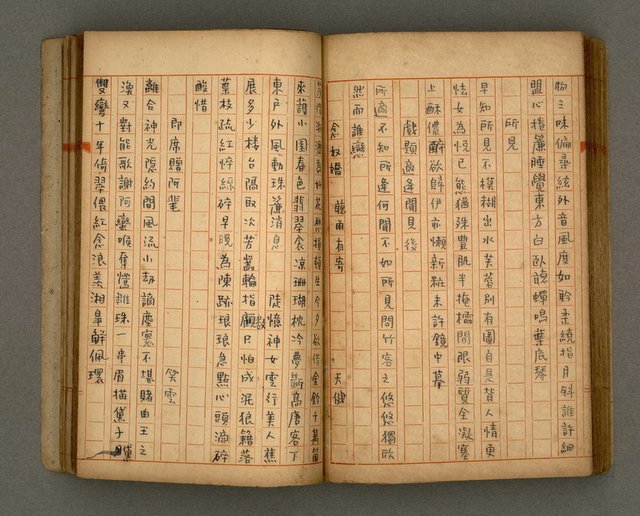 物三味偏牽絃外音風度如聆柔繞指月斜誰許細
盟心捲簾睡覺東方白臥聽蟬鳴葉底琴
所見
早知所見不模糊出水芙蓉別有圖自是賢人情更
怯女為悅已能猶殊豐肌半掩橋間眼弱質全凝塞
上酥儂醉欲歸伊亦懶新粧未許鏡中摹
戲題適逢聞見後
所適不知所逢何聞不如所見問竹客之悠悠獨歌
然而誰戀
念奴嬌 聽雨有寄 天健
來護小園春色翡翠衾凉珊瑚枕冷夢斷高唐客丁
東戶外風動珠簾消息 陡憶神女雲行美人蕉
展多少樓台隔取次芳叢輪指顧只怕成泥狼籍落
蕊枝疏紅悴綠碎早晚為陳跡琅琅急點心頭滴碎
酸惜
即席贈阿鞏 笑雲
離合神光隱約間風流小劫謫塵寰不堪賭曲王之
渙又對能歌謝阿蠻喉奪鶯雛珠一串眉描黛子
雙彎十年倚翠偎紅念浪羨湘皋解佩環